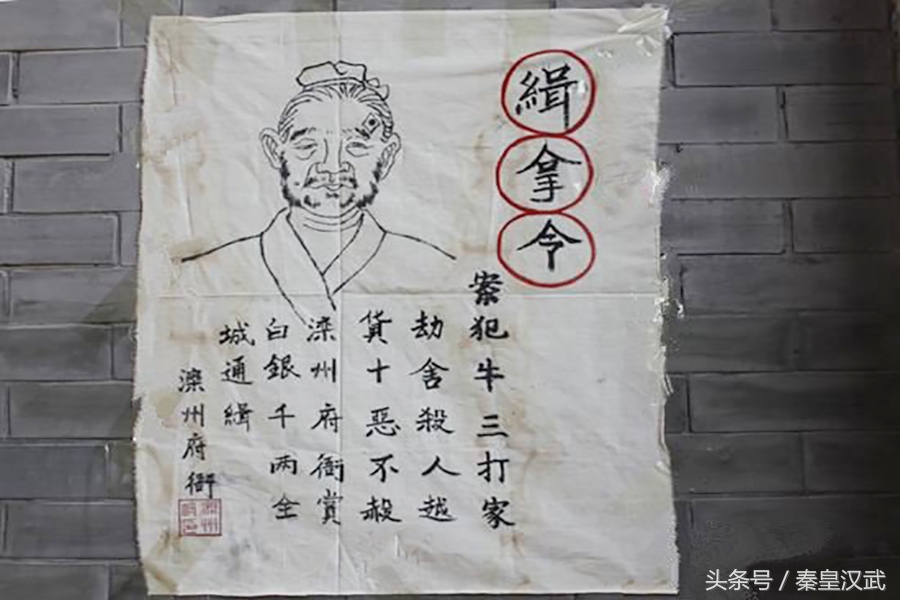 緝拿令
案犯牛三打家
劫舍殺人越
貨十惡不殺
滦州府衙賞
白銀千两全
城通緝
滦州府衙
头条号 / 秦皇汉武